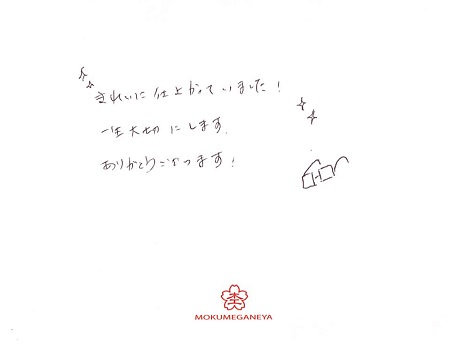 きれいに仕上がっていました!
一生大切にします。
ありがとうございます!
杢
MOKUMEGANEYA